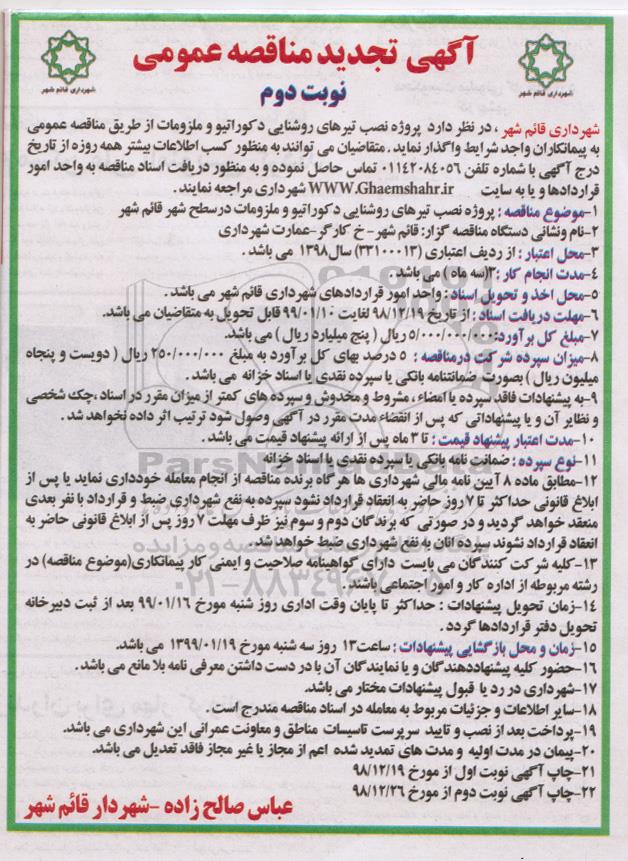 آگهی تجدید مناقصه عمومی
نوبت دوم
شهرداری قائم شهر
شهرداری قائم شهر
شهرداری قائم شهر ، در نظر دارد پروژه نصب تیرهای روشنایی دکوراتیو و ملزومات از طریق مناقصه عمومی
به پیمانکاران واجد شرایط واگذار نماید . متقاضیان می توانند به منظور کسب اطلاعات بیشتر همه روزه از تاریخ
درج آگهی با شماره تلفن ۰۱۱۴۲۰۸۴۰۵۶ تماس حاصل نموده و به منظور دریافت اسناد مناقصه به واحد امور
قراردادها و یا به سایت WWW.Ghaemshahr.ir شهرداری مراجعه نمایند .
۱-موضوع مناقصه : پروژه نصب تیرهای روشنایی دکوراتیو و ملزومات درسطح شهر قائم شهر
۲-نام ونشانی دستگاه مناقصه گزار: قائم شهر - خ کارگر-عمارت شهرداری
۳-محل اعتبار : از ردیف اعتباری (۳۳۱۰۰۰۱۳) سال۱۳۹۸ می باشد .
۴-مدت انجام کار :۳(سه ماه ) می باشد .
۵-محل اخذ و تحویل اسناد : واحد امور قراردادهای شهرداری قائم شهر می باشد .
۶-مهلت دریافت اسناد : از تاریخ ۹۸/۱۲/۱۹ لغایت ۹۹/۰۱/۱۰ قابل تحویل به متقاضیان می باشد.
۷-مبلغ کل برآورد: ۵/۰۰۰/۰۰۰/۰۰۰ ریال ( پنج میلیارد ریال ) می باشد.
۸-میزان سپرده شرکت درمناقصه : ۵ درصد بهای کل برآورد به مبلغ ۲۵۰/۰۰۰/۰۰۰ ریال ( دویست و پنجاه
میلیون ریال ) بصورت ضمانتنامه بانکی یا سپرده نقدی یا اسناد خزانه می باشد .
۹-به پیشنهادات فاقد سپرده یا امضاء ، مشروط و مخدوش و سپرده های کمتر از میزان مقرر در اسناد ،چک شخصی
و نظایر آن و یا پیشنهاداتی که پس از انقضاء مدت مقرر در آگهی وصول شود ترتیب اثر داده نخواهد شد .
۱۰-مدت اعتبار پیشنهاد قیمت : تا ۳ ماه پس از ارائه پیشنهاد قیمت می باشد .
۱۱-نوع سپرده : ضمانت نامه بانکی یا سپرده نقدی یا اسناد خزانه
۱۲-مطابق ماده ۸ آیین نامه مالی شهرداری ها هرگاه برنده مناقصه از انجام معامله خودداری نماید یا پس از
ابلاغ قانونی حداکثر تا ۷ روز حاضر به انعقاد قرارداد نشود سپرده به نفع شهرداری ضبط و قرارداد با نفر بعدی
منعقد خواهد گردید و در صورتی که برندگان دوم و سوم نیز ظرف مهلت ۷ روز پس از ابلاغ قانونی حاضر به
انعقاد قرارداد نشوند سپرده آنان به نفع شهرداری ضبط خواهدشد .
۱۳-کلیه شرکت کنندگان می بایست دارای گواهینامه صلاحیت و ایمنی کار پیمانکاری(موضوع مناقصه) در
رشته مربوطه از اداره کار و امور اجتماعی باشند .
۱۴-زمان تحویل پیشنهادات : حداکثر تا پایان وقت اداری روز شنبه مورخ ۹۹/۰۱/۱۶ بعد از ثبت دبیرخانه
تحویل دفتر قراردادها گردد .
۱۵-زمان و محل بازگشایی پیشنهادات : ساعت۱۳ روز سه شنبه مورخ ۱۳۹۹/۰۱/۱۹ می باشد.
۱۶-حضور کلیه پیشنهاددهندگان و یا نمایندگان آن با در دست داشتن معرفی نامه بلا مانع می باشد .
۱۷-شهرداری در رد یا قبول پیشنهادات مختار می باشد.
۱۸-سایر اطلاعات و جزئیات مربوط به معامله در اسناد مناقصه مندرج است .
۱۹-پرداخت بعد از نصب و تایید سرپرست تاسیسات مناطق و معاونت عمرانی این شهرداری می باشد.
۲۰-پیمان در مدت اولیه و مدت های تمدید شده اعم از مجاز یا غیر مجاز فاقد تعدیل می باشد.
۲۱-چاپ آگهی نوبت اول از مورخ ۹۸/۱۲/۱۹
۲۲-چاپ آگهی نوبت دوم از مورخ ۹۸/۱۲/۲۶
عباس صالح زاده -شهردار قائم شهر
ParsNamadData